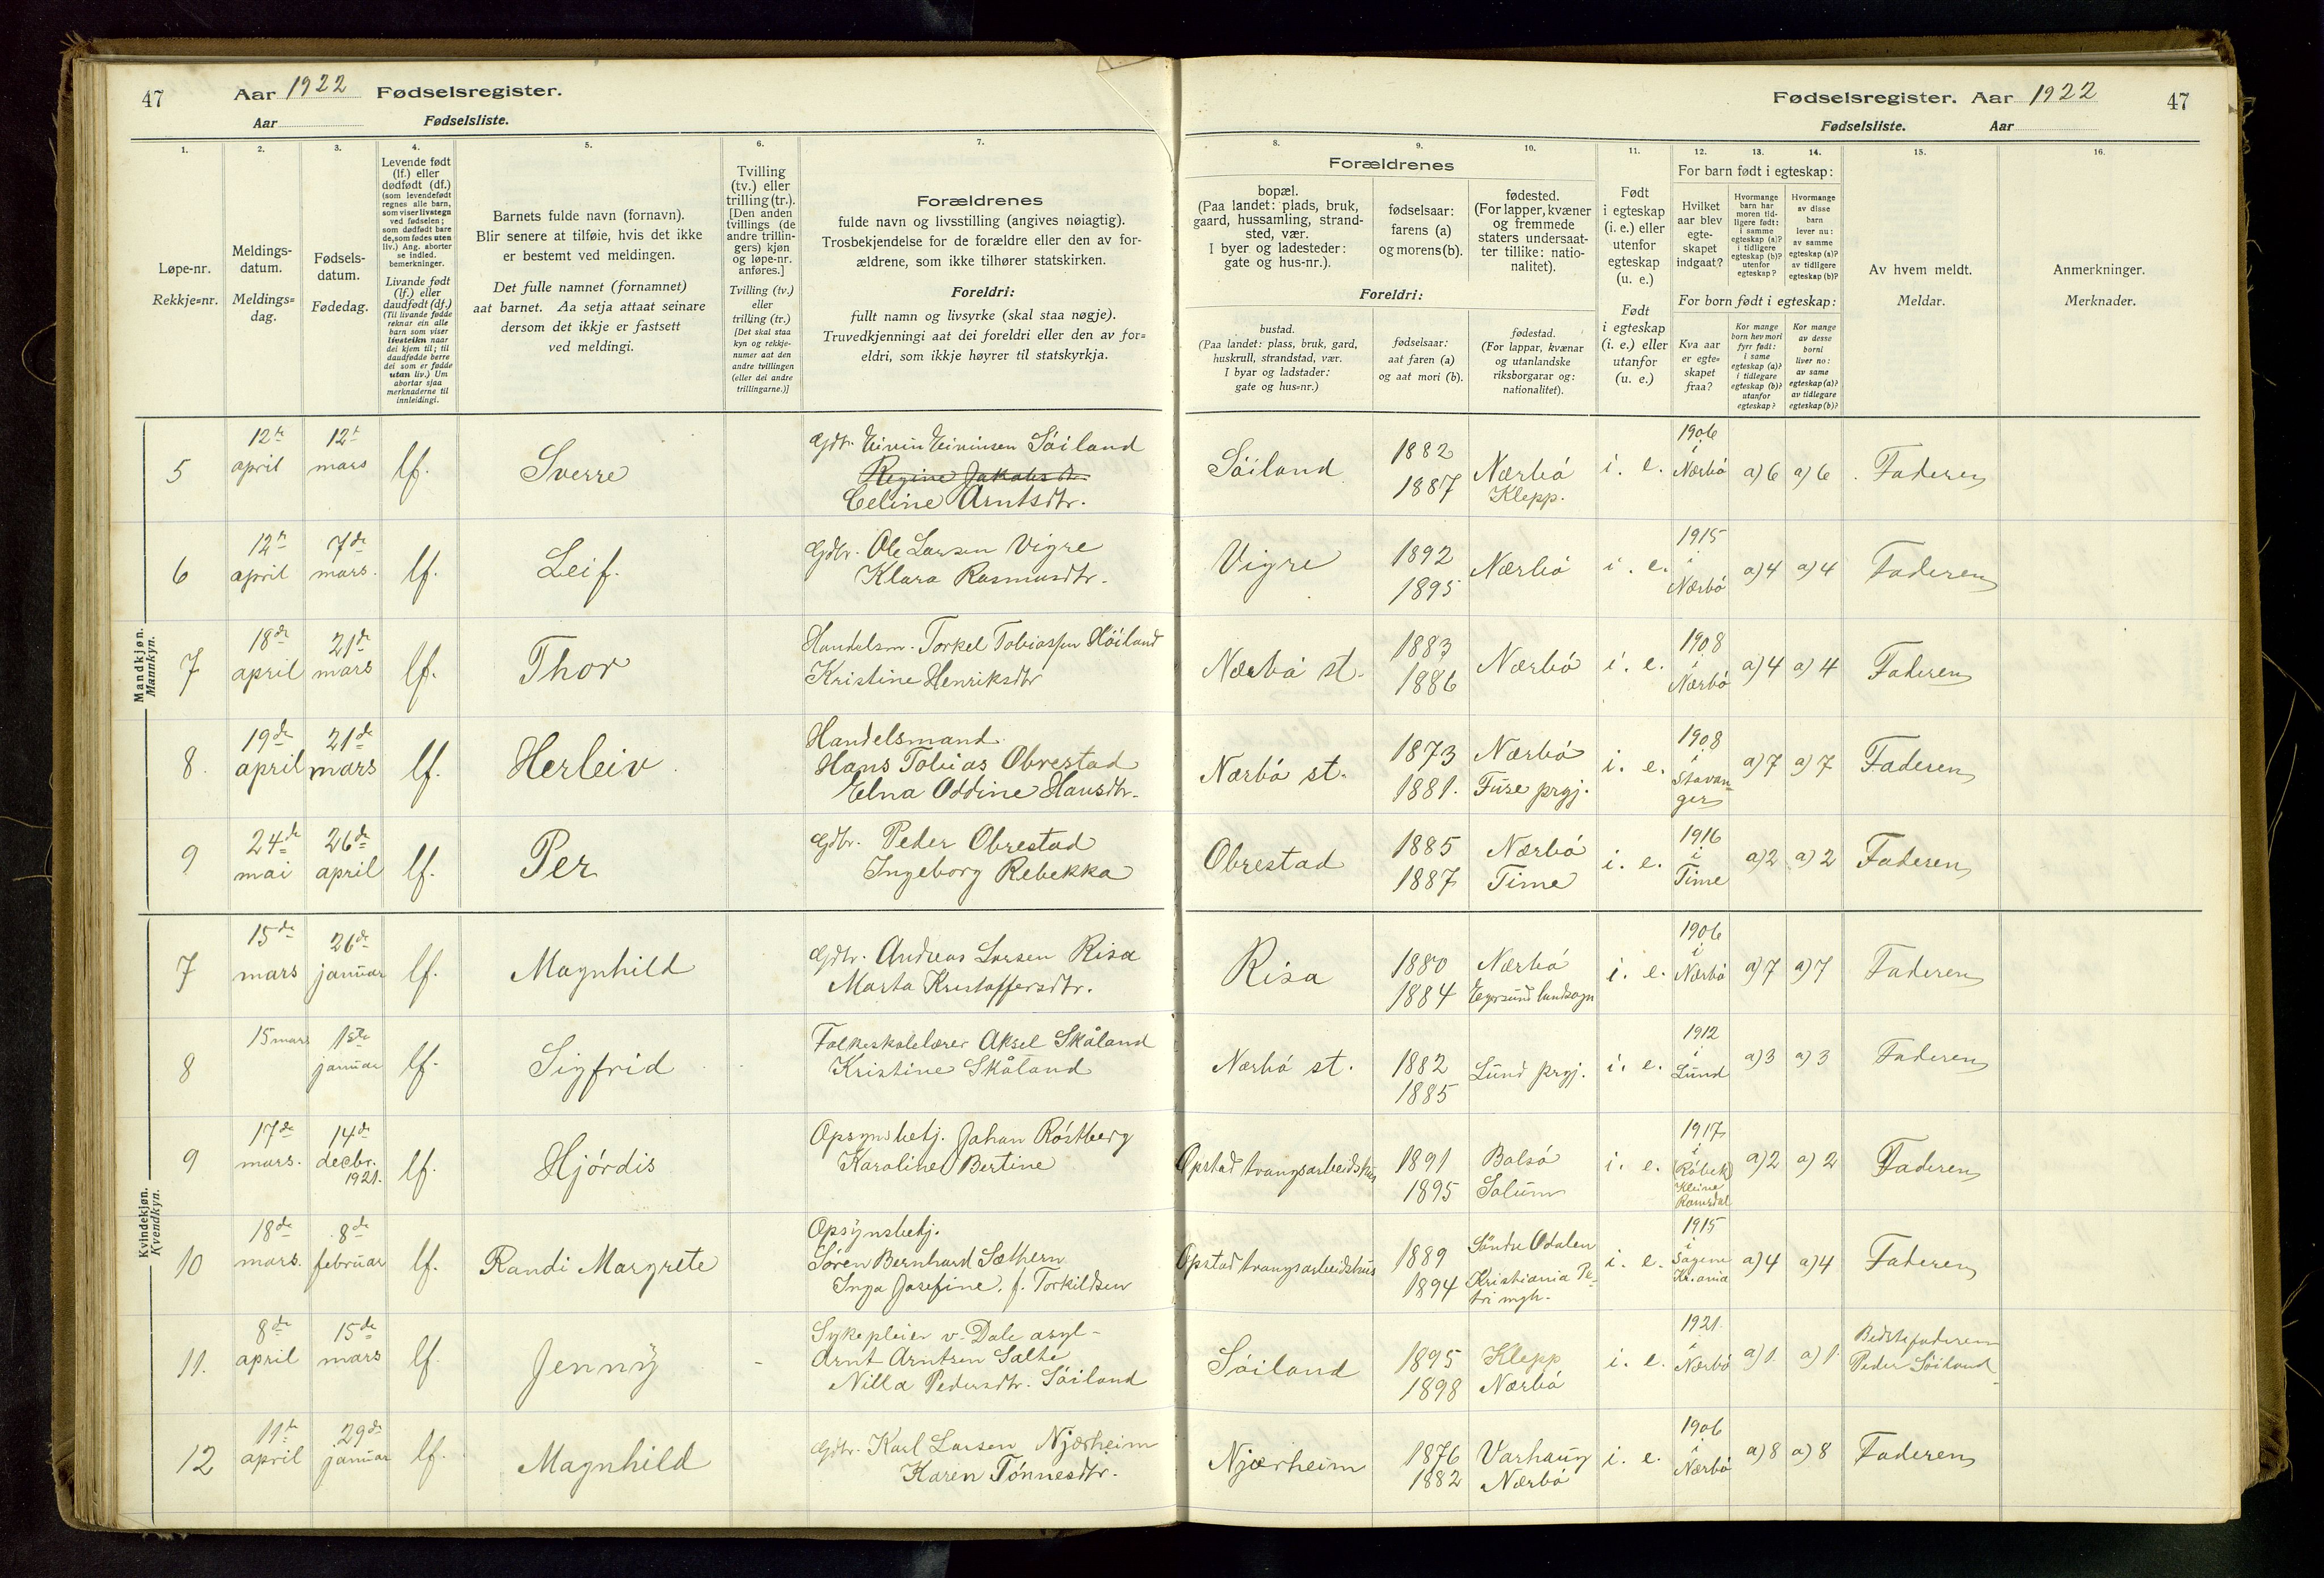 47
Aar 1922 Fødselsregister.
Aar Fødselsliste.
Fødselsregister. Aar 1922
47
Fødselsliste. Aar
1.
Løpe-nr.
Rekkje=nr.
2.
Meldings-
datum.
Meldings=
dag.
3.
Fødsels-
datum.
Fødedag.
4.
Levende født
(lf.) eller
dødfødt (df.)
(som levendefødt
regnes alle barn,
som viser livstegn
ved fødselen;
som dødfødt bare
de, som fødes uten
liv.) Ang. aborter
se indled.
bemerkninger.
Livande født
(lf.) eller
daudfødt (df.)
(Til livande fødde
reknar ein alle
barn som viser
livsteikn naar
dei kjem til; til
daudfødde berre
dei som er fødde
utan liv.) Um
abortar sjaa
merknaderne til
innleidingi.
5.
Barnets fulde navn (fornavn).
Blir senere at tilføie, hvis det ikke
er bestemt ved meldingen.
Det fulle namnet (fornamnet)
aat barnet. Aa setja attaat seinare
dersom det ikkje er fastsett
ved meldingi.
6.
Tvilling
(tv.) eller
trilling (tr.).
[Den anden
tvillings (de
andre trillin-
gers) kjøn
og løpe-nr.
anføres.]
Tvilling (tv.)
eller
trilling (tr.)
[Det skal staa
kyn og rekkje-
numer aat den
andre tvillingen
(eller dei andre
trillingarne.)]
7.
Forældrenes
fulde navn og livsstilling (angives nøiagtig).
Trosbekjendelse for de forældre eller den av for-
ældrene, som ikke tilhører statskirken.
Foreldri:
fullt namn og livsyrke (skal staa nøgje).
Truvedkjenningi aat dei foreldri eller den av for=
eldri, som ikkje høyrer til statskyrkja.
Forældrenes
8.
bopæl.
(Paa landet: plads, bruk,
gaard, hussamling, strand-
sted, vær.
I byer og ladesteder:
gate og hus-nr.).
Foreldri:
bustad.
(Paa landet: plass, bruk, gard,
huskrull, strandstad, vær.
I byar og ladstader:
gate og hus=nr.)
9.
fødselsaar:
farens (a)
og morens (b).
fødselsaar:
aat faren (a)
og aat mori (b).
10.
fødested.
(For lapper, kvæner
og fremmede
staters undersaat-
ter tillike: natio-
nalitet).
fødestad.
(For lappar, kvænar
og utanlandske
riksborgarar og:
nationalitet).
11.
Født
i egteskap
(i. e.) eller
utenfor
egteskap
(u. e.)
Født
i egteskap
(i. e.) eller
utanfor
(u. e.)
For barn født i egteskap:
12.
Hvilket
aar blev
egte-
skapet
indgaat?
For born født i egteskap:
Kva aar
er egte=
skapet
fraa?
13.
Hvormange
barn har
moren tid-
ligere født:
i samme
egteskap (a)?
i tidligere
egteskap (b)?
utenfor
egteskap?
Kor mange
born hev mori
fyrr født:
i same
egteskap (a)?
i tidlegare
egteskap (b)?
utanfor
egteskap?
14.
Hvormange
av disse
barn
lever nu:
av samme
egteskap (a)?
av tidligere
egteskap (b)?
Kor mange
av desse
borni
liver no:
av same
egteskap (a)?
av tidlegare
egteskap (b)?
15.
Av hvem meldt.
Meldar.
16.
Anmerkninger.
Merknader.
Mandkjøn.
Mannkyn.
5 12te april 12te mars lf. Sverre
Gdbr. Eivin Eivinsen Söiland
Regine Jakobsdtr.
Celine Arntsdtr.
Söiland 1882 1887 Nærbö Klepp. i. e. 1906 i Nærbö a) 6 a) 6 Faderen
6 12te april 7de mars. lf. Leif.
Gdbr. Ole Larsen Vigre
Klara Rasmusdtr.
Vigre 1892 1895 Nærbö i. e. 1915 i Nærbö a) 4 a) 4 Faderen
7 18de april 21de mars lf. Thor
Handelsm. Torkel Tobiassen Höiland
Kristine Henriksdtr
Nærbö st. 1883 1886 Nærbö i. e. 1908 i Nærbö a) 4 a) 4 Faderen
8. 19de april 21de mars lf. Herleiv
Handelsmand
Hans Tobias Obrestad
Elna Oddine Hansdtr.
Nærbö st. 1873 1881. Nærbö Fuse prgj. i. e. 1908 i Stavanger a) 7 a) 7 Faderen
9 24de mai 26de april lf. Per
Gdbr. Peder Obrestad
Ingeborg Rebekka
Obrestad 1885 1887 Nærbö Time i. e. 1916 i Time a) 2 a) 2 Faderen
Kvindekjøn.
Kvendkyn.
7 15de mars 26de januar lf. Magnhild
Gdbr. Andreas Larsen Risa
Marta Kristoffersdtr.
Risa 1880 1884 Nærbö Egersund landsogn i. e. 1906 i Nærbö a) 7 a) 7 Faderen
8 15 mars 1ste januar lf. Sigfrid
Folkeskolelærer Aksel Skåland
Kristine Skåland
Nærbö st. 1882 1885 Lund prgj. i. e. 1912 i Lund a) 3 a) 3 Faderen
9 17de mars. 14de decbr. 1921. lf. Hjördis
Opsynsbetj. Johan Röstberg
Karoline Bertine
Opstad tvangsarbeidshus 1891 1895 Bolsö Solum i. e. 1917 i Röbek Kleive Romsdal a) 2 a) 2 Faderen
10 18de mars. 8de februar lf. Randi Margrete
Opsynsbetj.
Sören Bernhard Sæthern
Inga Josefine. f. Torkildsen
Opstad tvangsarbeidshus 1889 1894 Söndre Odalen Kristiania Petri mgh. i. e. 1915 i Sagene Kr.ania a) 4 a) 4 Faderen
11. 8de april 15de mars lf Jenny
Sykepleier v. Dale asyl-
Arnt Arntsen Salte
Nilla Pedersdtr. Söiland
Söiland 1895 1898 Klepp Nærbö i. e. 1921. i Nærbö a) 1. a) 1. Bedstefaderen Peder Söiland
12 11te april 29de januar lf. Magnhild
Gdbr. Karl Larsen Njærheim
Karen Tönnesdtr.
Njærheim 1876 1882 Varhaug Nærbö i. e. 1906 i Nærbö a) 8 a) 8 Faderen